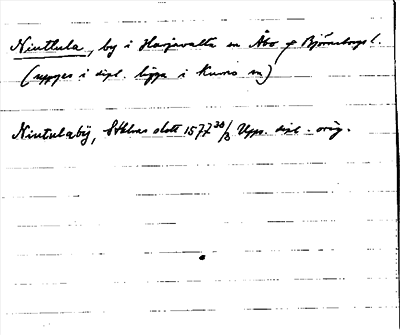 Niuttula, by i Harjavalta sn Åbo o Björneborgs l.
(uppges i dipl. ligga i Kumo sn)
Niutulaby, Sthlms slott 1577 30/3 Upps. dipl. orig.